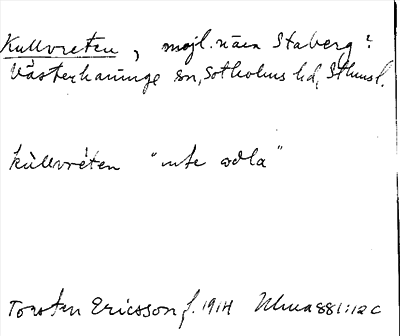 Kullvreten, möjl. nära Staberg?
Västerhaninge sn, Sotholms hd, Sthmsl.
kùllvréten "inte odla"
Torsten Ericsson f. 1914 Uma 881:12 c